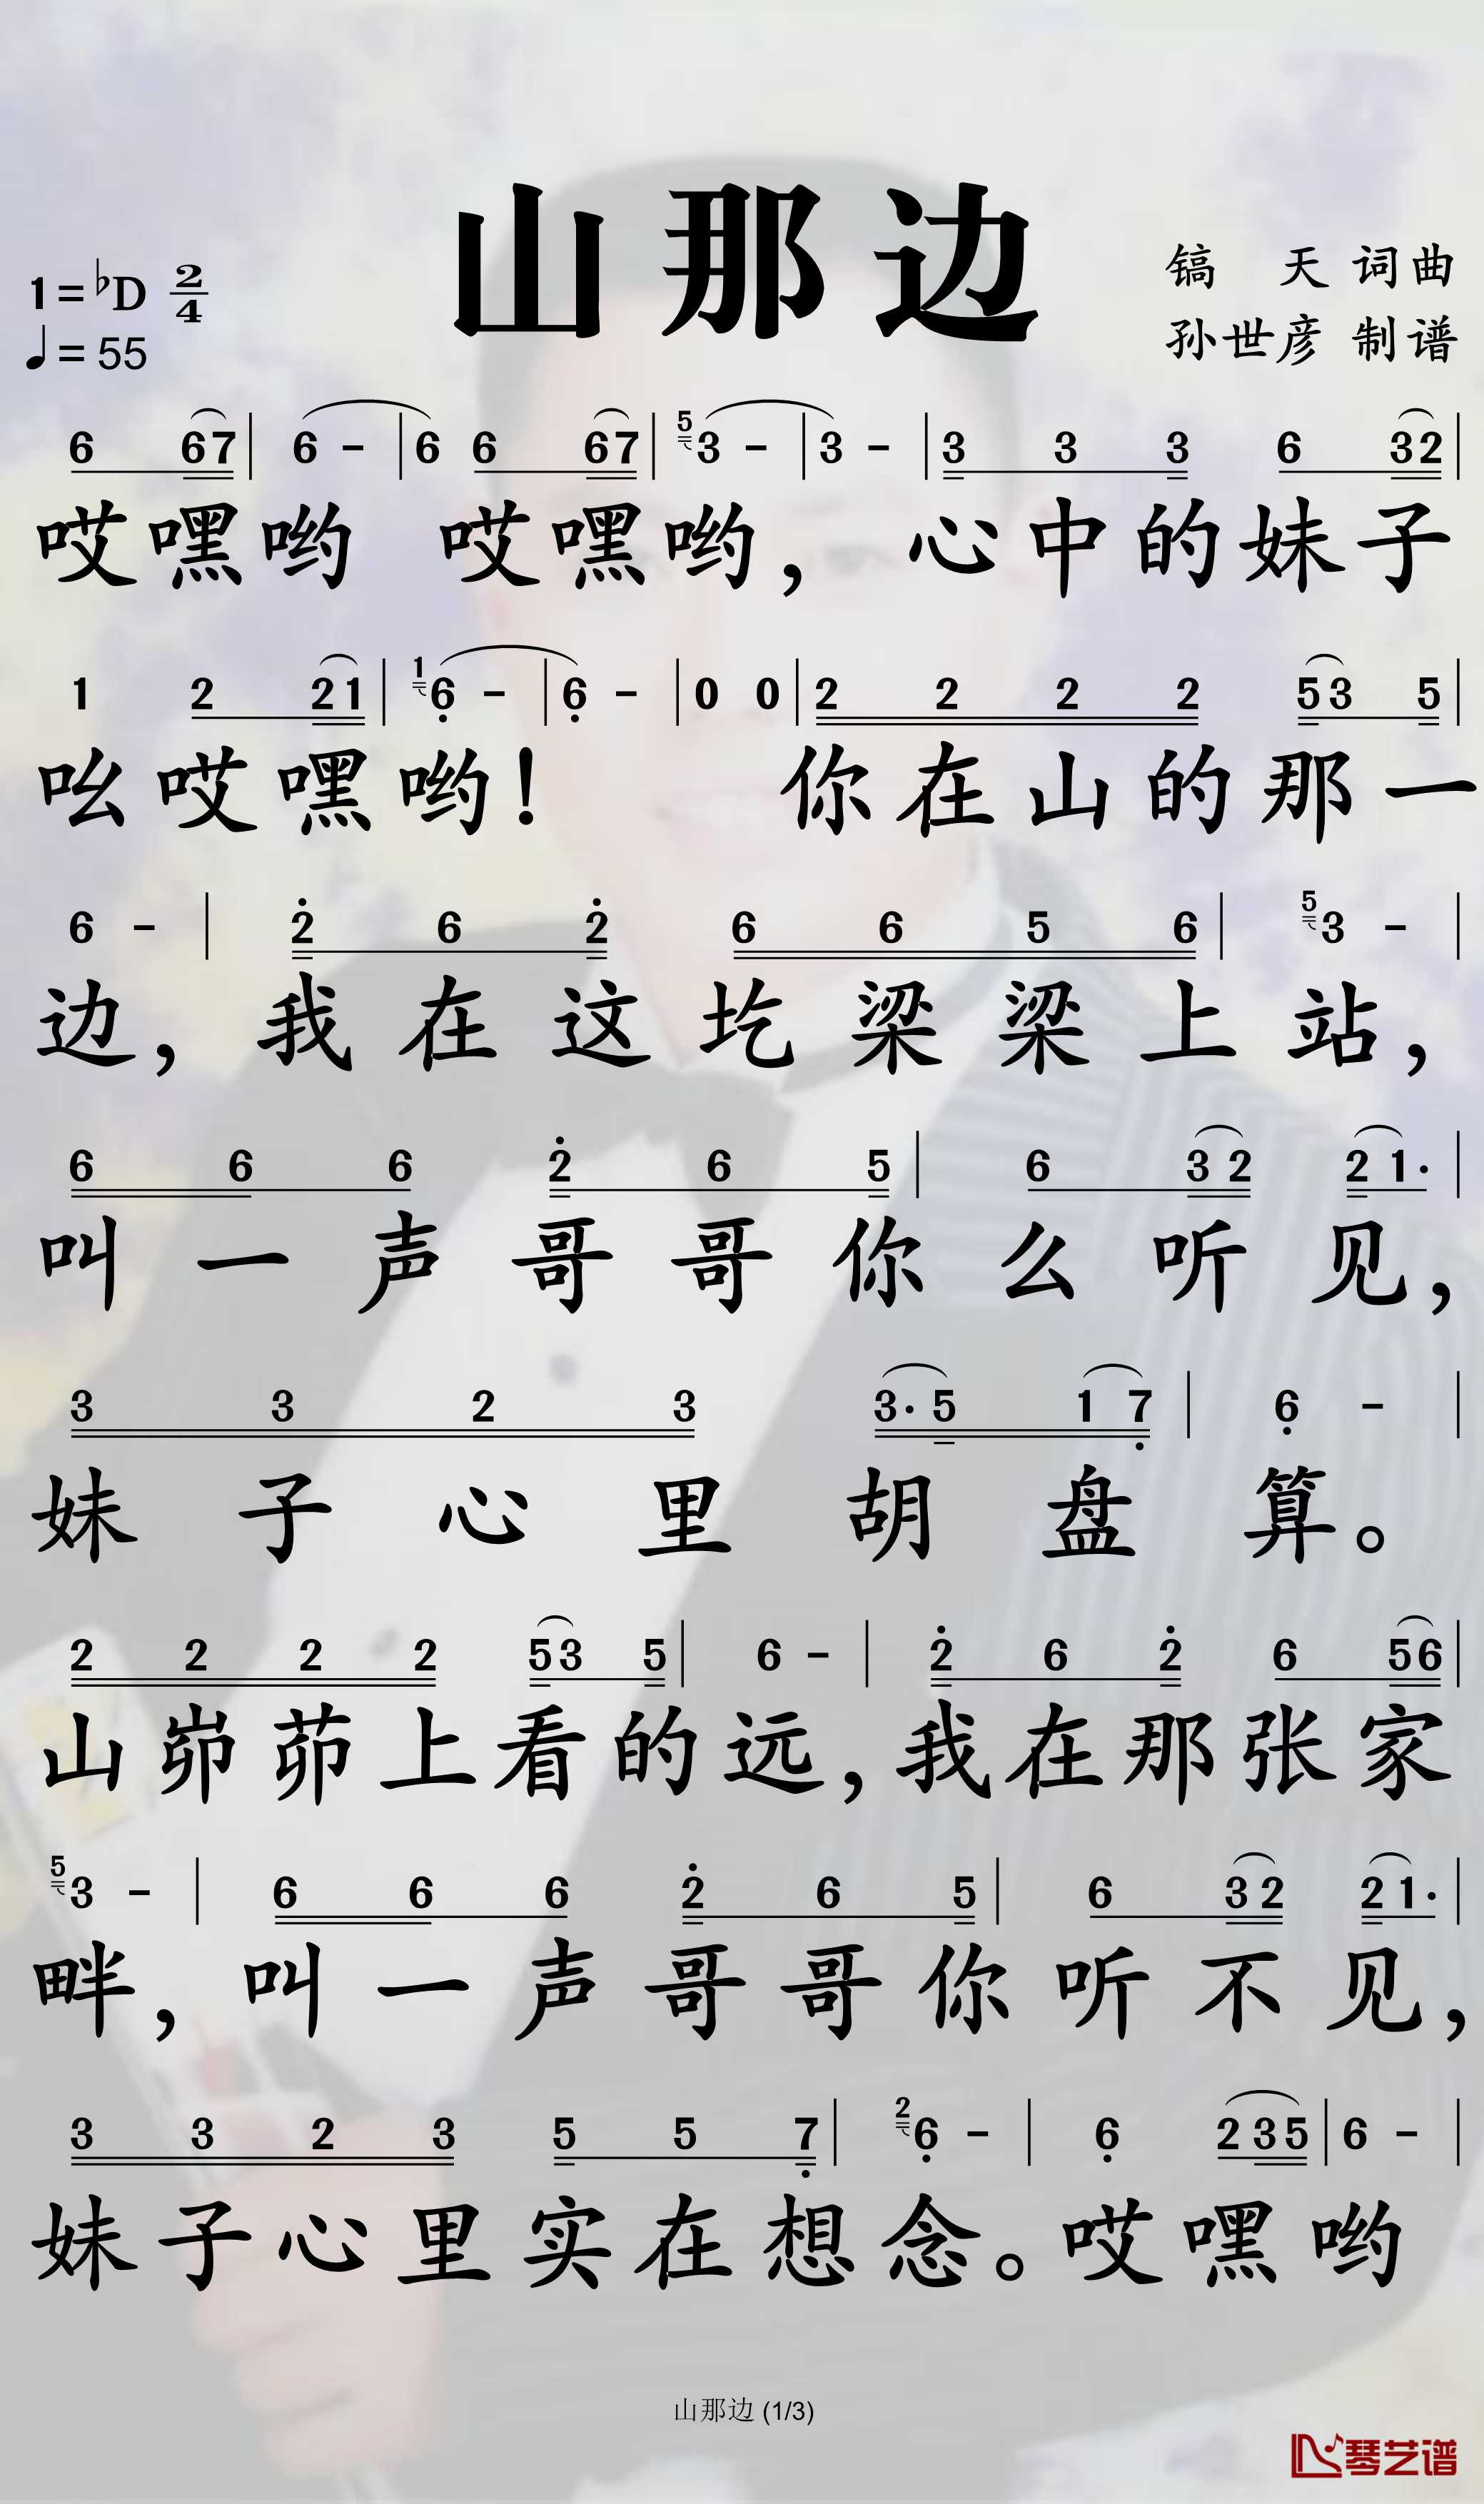 山那边
1=♭D 2/4
♩=55
镐 天 词曲
孙世彦 制谱
6 67 | 6 - | 6 6 67 | 5 3 - | 3 - | 3 3 3 6 32 |
哎嘿哟 哎嘿哟，心中的妹子
1 2 21 | 1 6 - | 6 - | 0 0 | 2 2 2 2 53 5 |
吆哎嘿哟！ 你在山的那一
6 - | 2 6 2 6 6 5 6 | 5 3 - |
边，我在这圪梁梁上站，
6 6 6 2 6 5 | 6 32 21· |
叫一声哥哥你么听见，
3 3 2 3 3·5 17 | 6 - |
妹子心里胡盘算。
2 2 2 2 53 5 | 6 - | 2 6 2 6 56 |
山峁茆上看的远，我在那张家
5 3 - | 6 6 6 2 6 5 | 6 32 21· |
畔，叫一声哥哥你听不见，
3 3 2 3 5 5 7 | 2 6 - | 6 235 | 6 - |
妹子心里实在想念。哎嘿哟
山那边 (1/3)
琴艺谱